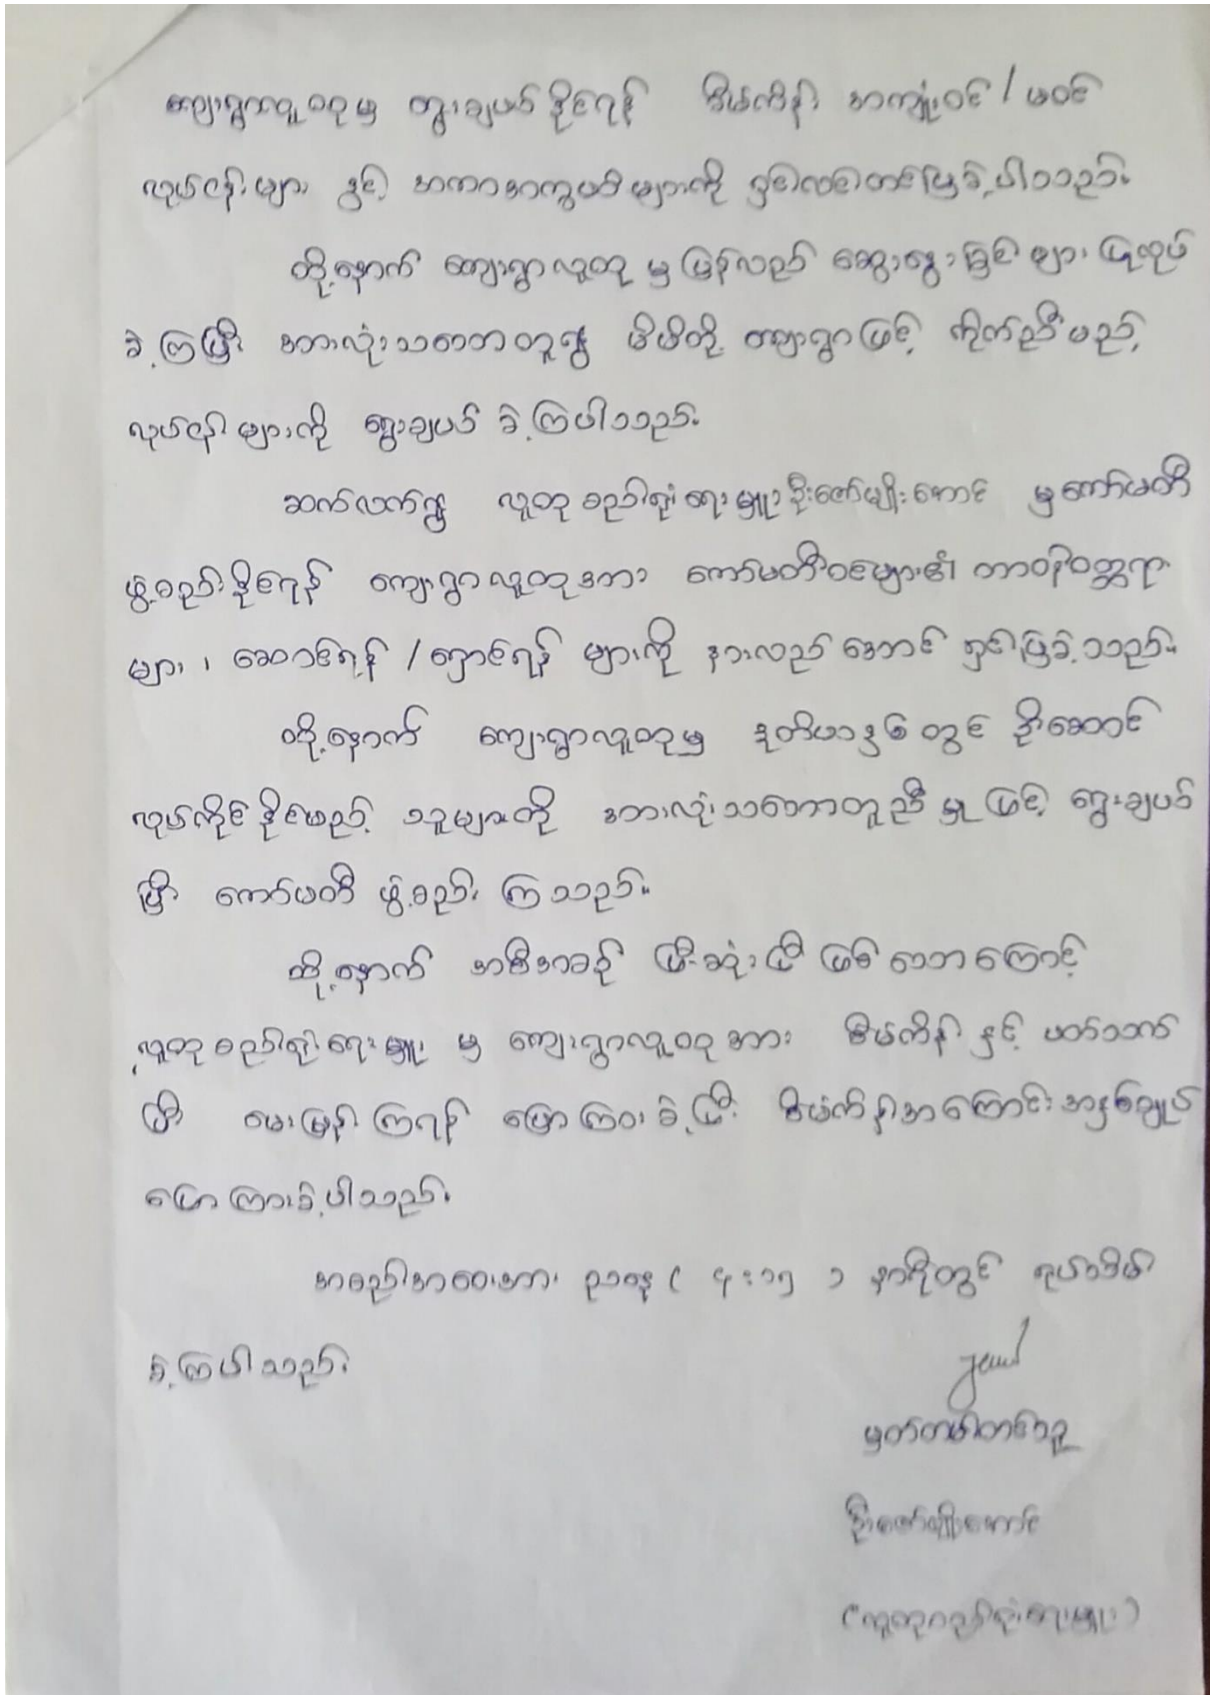 ကျေးရွာလူထုမှ ရွေးချယ်နိုင်ရန် စီမံကိန်း အကျုံးဝင် / မဝင်
လုပ်ငန်းများ နှင့် အကာအကွယ်များကို ရှင်းလင်းတင်ပြခဲ့ပါသည်။
ထို့နောက် ကျေးရွာလူထုမှ ပြန်လည် ဆွေးနွေးခြင်းများ ပြုလုပ်
ခဲ့ကြပြီး အားလုံးသဘောတူ၍ မိမိတို့ ကျေးရွာဖြင့် ကိုက်ညီမည့်
လုပ်ငန်းများကို ရွေးချယ် ခဲ့ကြပါသည်။
ဆက်လက်၍ လူထုစည်းရုံးရေးမှူး ဦးဇော်မျိုးအောင် မှ ကော်မတီ
ဖွဲ့စည်းနိုင်ရန် ကျေးရွာလူထုအား ကော်မတီဝင်များ၏ တာဝန်ဝတ္တရား
များ ၊ ဆောင်ရန် / ရှောင်ရန် များကို နားလည် အောင် ရှင်းပြခဲ့သည်။
ထို့နောက် ကျေးရွာလူထုမှ ဒုတိယနှစ်တွင် ဦးဆောင်
လုပ်ကိုင်နိုင်မည့် သူများကို အားလုံးသဘောတူညီမှုဖြင့် ရွေးချယ်
ပြီး ကော်မတီ ဖွဲ့စည်း ကြသည်။
ထို့နောက် အစီအစဉ် ပြီးဆုံးပြီ ဖြစ်သောကြောင့်
လူထုစည်းရုံးရေးမှူး မှ ကျေးရွာလူထုအား စီမံကိန်း နှင့် ပတ်သက်
ပြီး မေးမြန်းကြရန် ပြောကြားခဲ့ပြီး စီမံကိန်းအကြောင်း အနှစ်ချုပ်
ပြောကြားခဲ့ပါသည်။
အစည်းအဝေးအား ညနေ ( ၄:၁၅ ) နာရီတွင် ရုပ်သိမ်း
ခဲ့ကြပါသည်။
မှတ်တမ်းတင်သူ
ဦးဇော်မျိုးအောင်
(လူထုစည်းရုံးရေးမှူး)